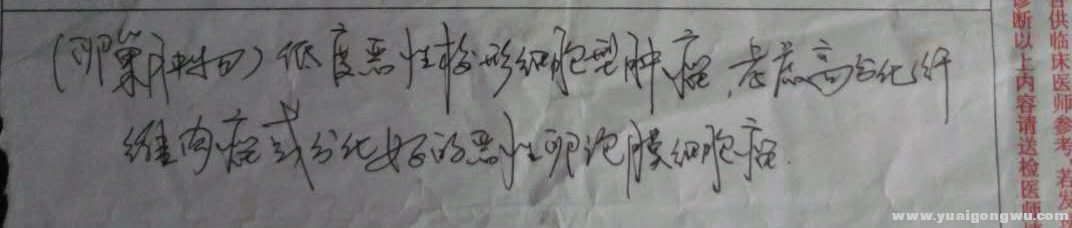 (卵巢肿物)低度恶性梭形细胞型肿瘤,考虑高分化纤
维肉瘤或分化好的恶性卵泡膜细胞瘤.
供临床医师参考,若发
诊断以上内容请送检医师
www.yuaigongwu.com